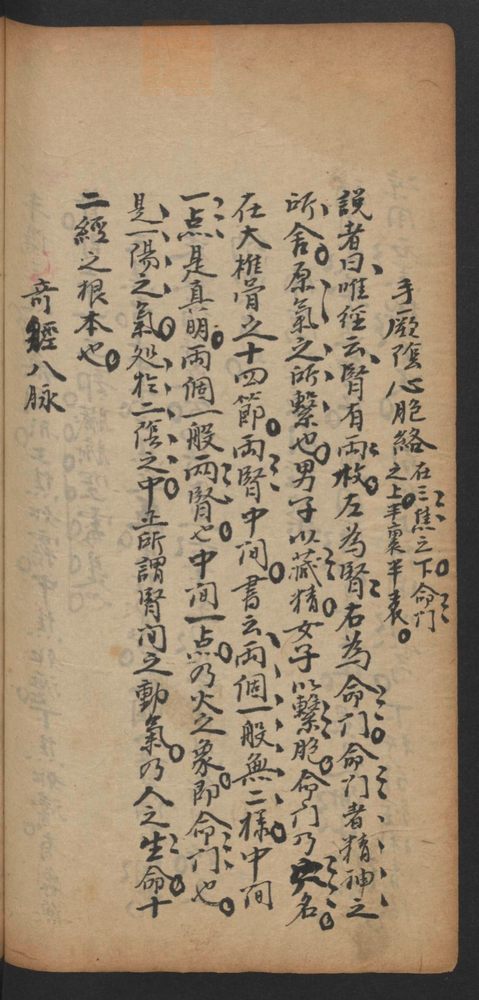 手厥陰心胞絡在三焦之下命门
之上半裏半表
説者曰唯經云腎有両枚左為腎右為命门命门者精神之
所舍原氣之所繫也男子以藏精女子以繫胞命门乃穴名
在大椎骨之十四節両腎中间書云両個一般無二樣中间
一点是真明両個一般両腎也中间一点乃火之象即命门也
是一陽之氣処於二陰之中正所謂腎间之動氣乃人之生命十
二經之根本也
奇經八脉